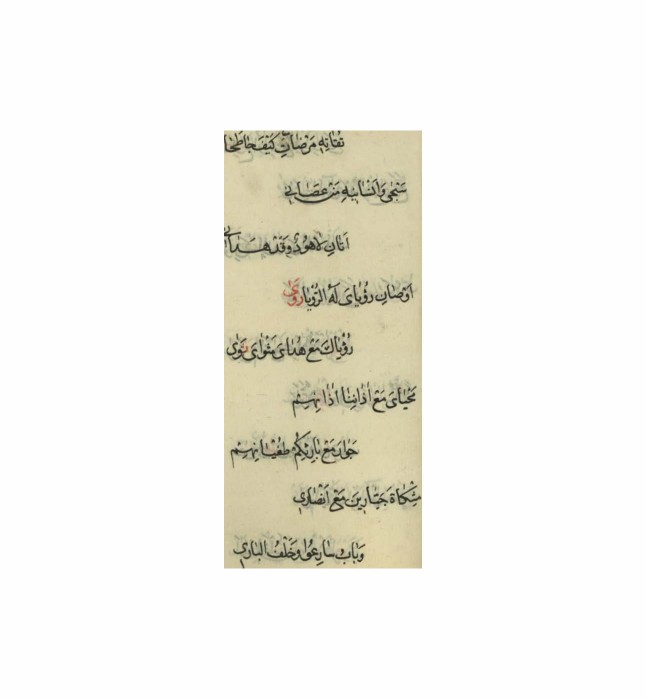 تُقَاتِهِ مَرْضَاتِ كَيْفَ جَا طَحَا
سَجَى وَأَنْسَانِيهِ مَنْ عَصَانِي
أَتَانِ لَا هُودُ وَقَدْ هَدَانِي
أَوْصَانِ رُؤْيَايَ لَهُ الرُّؤْيَا رَوَى
رُؤْيَاكَ مَعْ هُدَايَ مَثْوَايَ تَوَى
مَحْيَايَ مَعْ آذَانِنَا آذَانِهِمْ
جَوَارِ مَعْ بَارِئِكُمْ طُغْيَانِهِمْ
مِشْكَاةَ جَبَّارِينَ مَعْ أَنْصَارِي
وَبَابُ سَارِعُوا وَخُلْفُ الْبَارِي